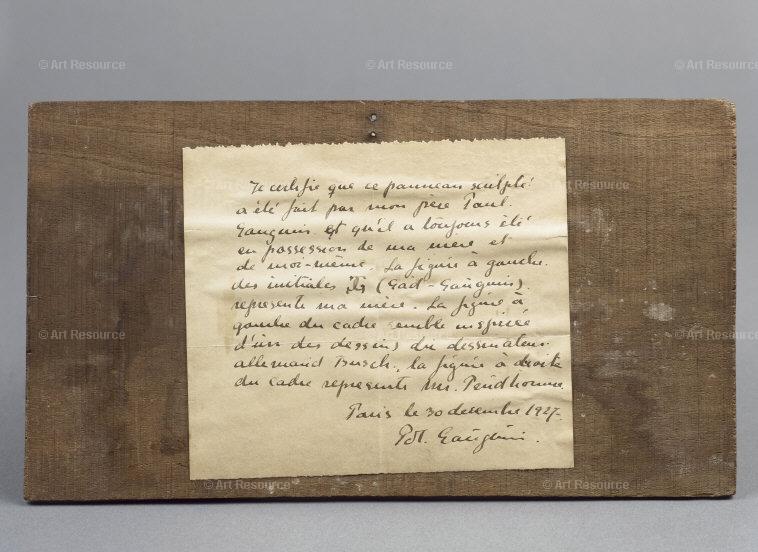 © Art Resource © Art Resource © Art Resource
Je certifie que ce panneau sculpté
a été fait par mon père Paul
Gauguin et qu'il a toujours été
en possession de ma mère et
de moi-même. La figure à gauche
des initiales (Gad-Gauguin)
représente ma mère. La figure à
gauche du cadre semble inspirée
d'un des dessins du dessinateur
allemand Busch, la figure à droite
du cadre represente Mr. Prudhomme
Paris le 30 decembre 1927.
Pol. Gauguin.
© Art Resource © Art Resource © Art Resource